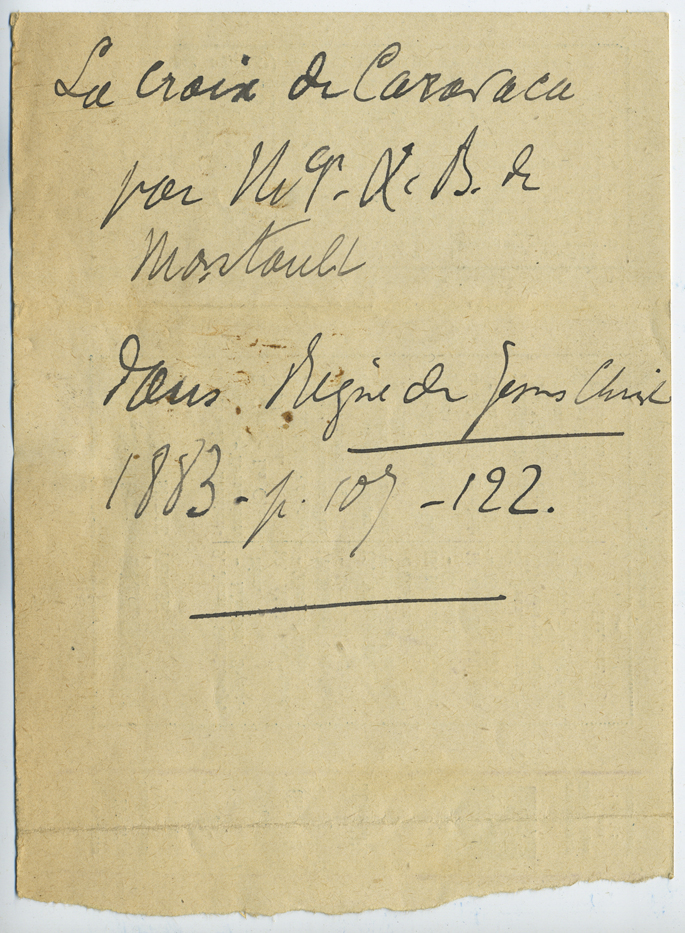 La croix de Caravaca
par Mgr. X. B. de
Montault
dans Règne de Jesus Christ
1883 - p. 107 - 122.